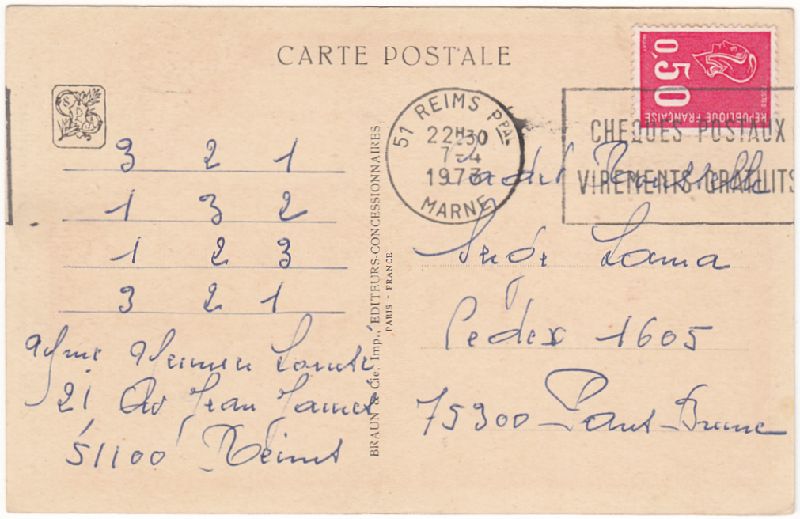 CARTE POSTALE
0,50
REPUBLIQUE FRANÇAISE
51 REIMS PPAL
22H30
7-4
1973
MARNE
CHEQUES POSTAUX
VIREMENTS GRATUITS
3 2 1
1 3 2
1 2 3
3 2 1
Mme Louise
21 Av Jean Jaurès
51100 Reims
BRAUN & Cie, Imp., EDITEURS-CONCESSIONNAIRES
PARIS - FRANCE
Lama
Cedex 1605
75300 Paris Brune